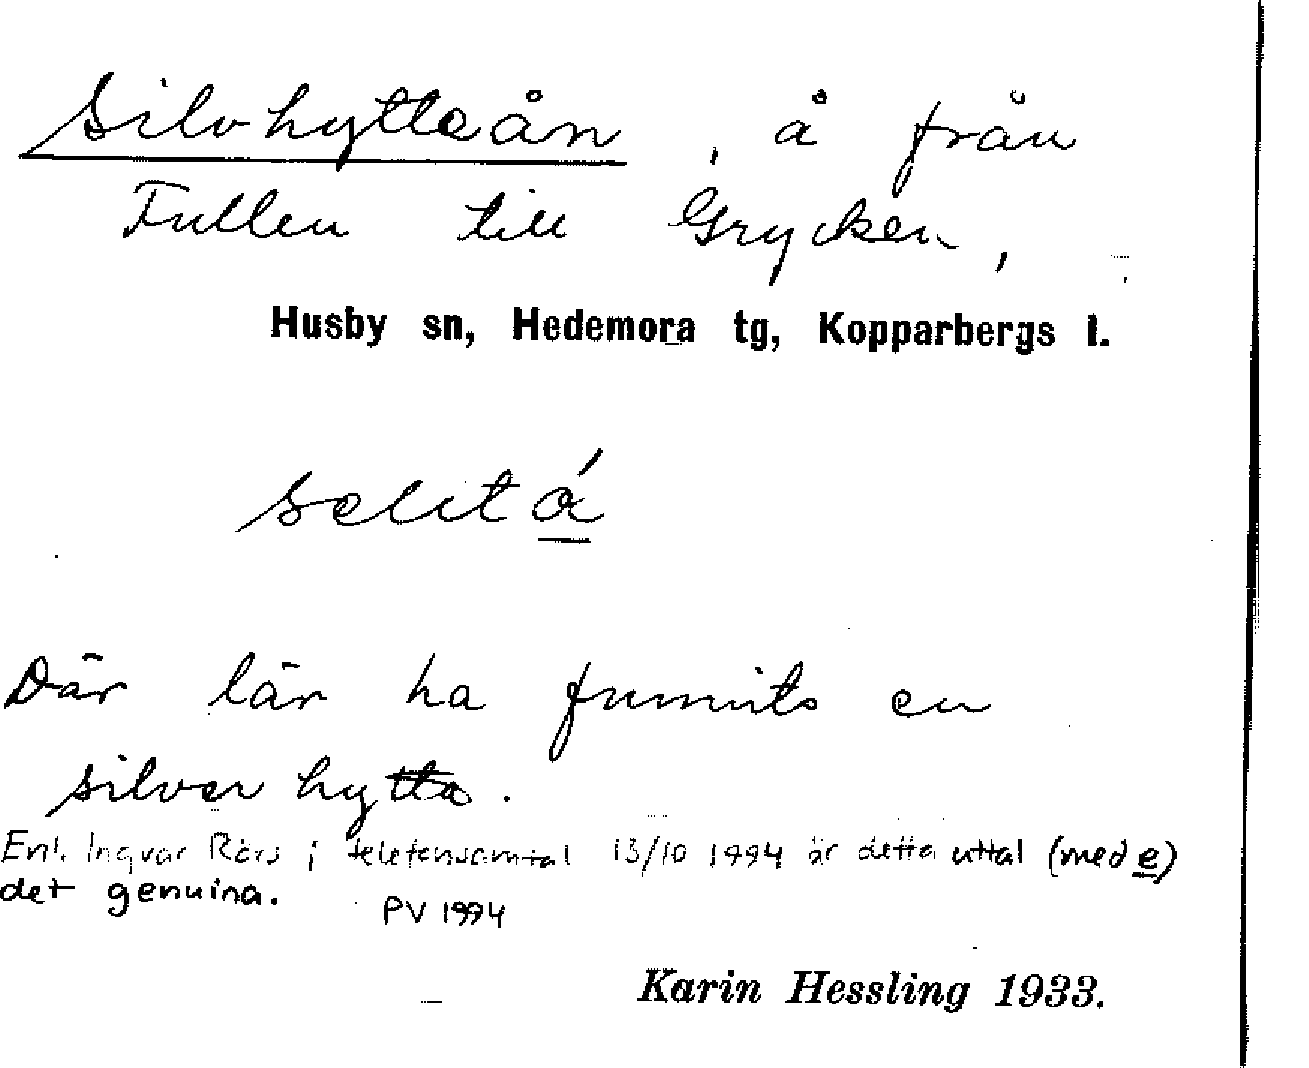 Silvhytteån, å från
Fullen till Grycken,
Husby sn, Hedemora tg, Kopparbergs l.
selitá
Där lär ha funnits en
silverhytta.
Enl. Ingvar Rörs i telefonsamtal 13/10 1994 är detta uttal (med e)
det genuina. PV 1994
Karin Hessling 1933.